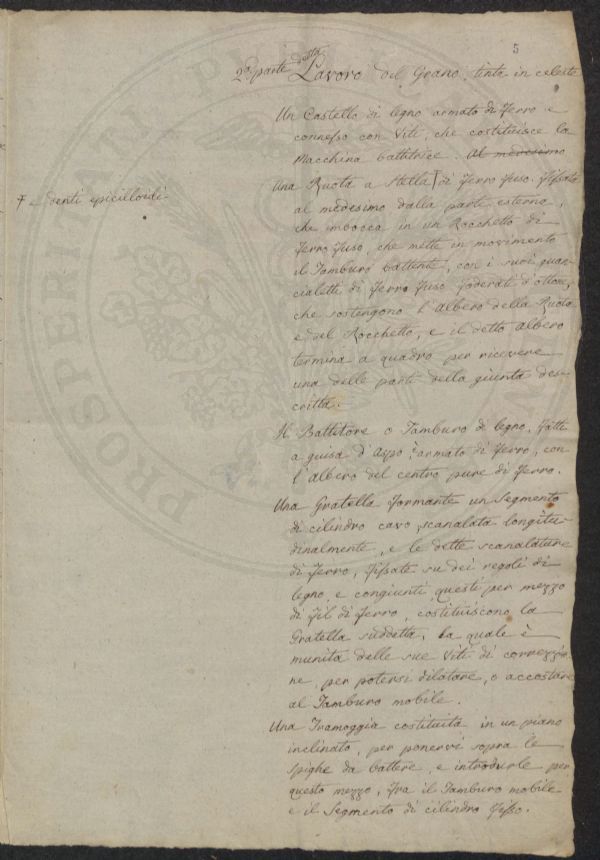 5
2a. parte detta Lavoro del Grano, tinta in celeste
Un Castello di legno armato di ferro e
connesso con Viti, che costituisce la
Macchina battitrice. Al medesimo
Una Ruota a Stella Ŧ di ferro fuso, fissata
Ŧ - denti epicilloidi -
al medesimo dalla parte esterna,
che imbocca in un Rocchetto di
ferro fuso, che mette in movimento
il Tamburo battente, con i suoi guan-
cialetti di ferro fuso foderati d'ottone,
che sostengono l'Albero della Ruota
e del Rocchetto, e il detto albero
termina a quadro per ricevere
una delle parti della giunta des-
critta.
Il Battitore o Tamburo di legno, fatto
a guisa d'Aspo, armato di ferro, con
l'albero del centro pure di ferro.
Una Gratella formante un Segmento
di cilindro cavo, scanalata longitu-
dinalmente, e le dette scanalature
di ferro, fissate su dei regoli di
legno e congiunti questi per mezzo
di fil di ferro, costituiscono la
Gratella suddetta, la quale è
munita delle sue Viti di correzzio-
ne, per potersi dilatare, o accostare
al Tamburo mobile.
Una Tramoggia costituita in un piano
inclinato, per ponervi sopra le
spighe da battere, e introdurle per
questo mezzo, fra il Tamburo mobile
e il Segmento di cilindro fisso.
PROSTER